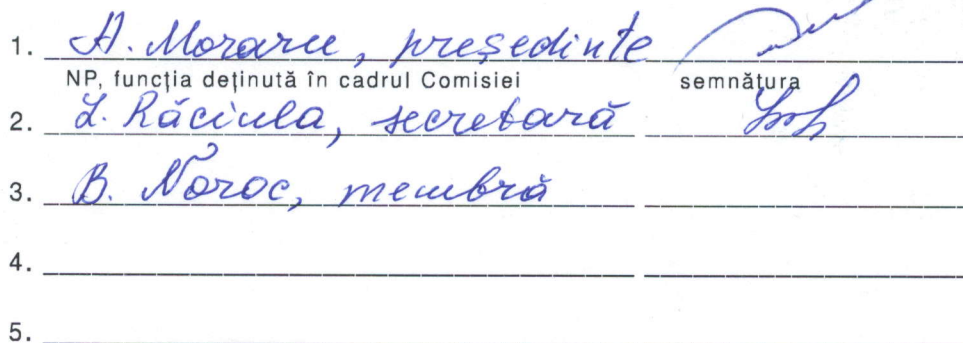 1. A. Moraru, președinte
NP, funcția deținută în cadrul Comisiei semnătura
2. L. Răciula, secretară
3. B. Noroc, membră
4.
5.